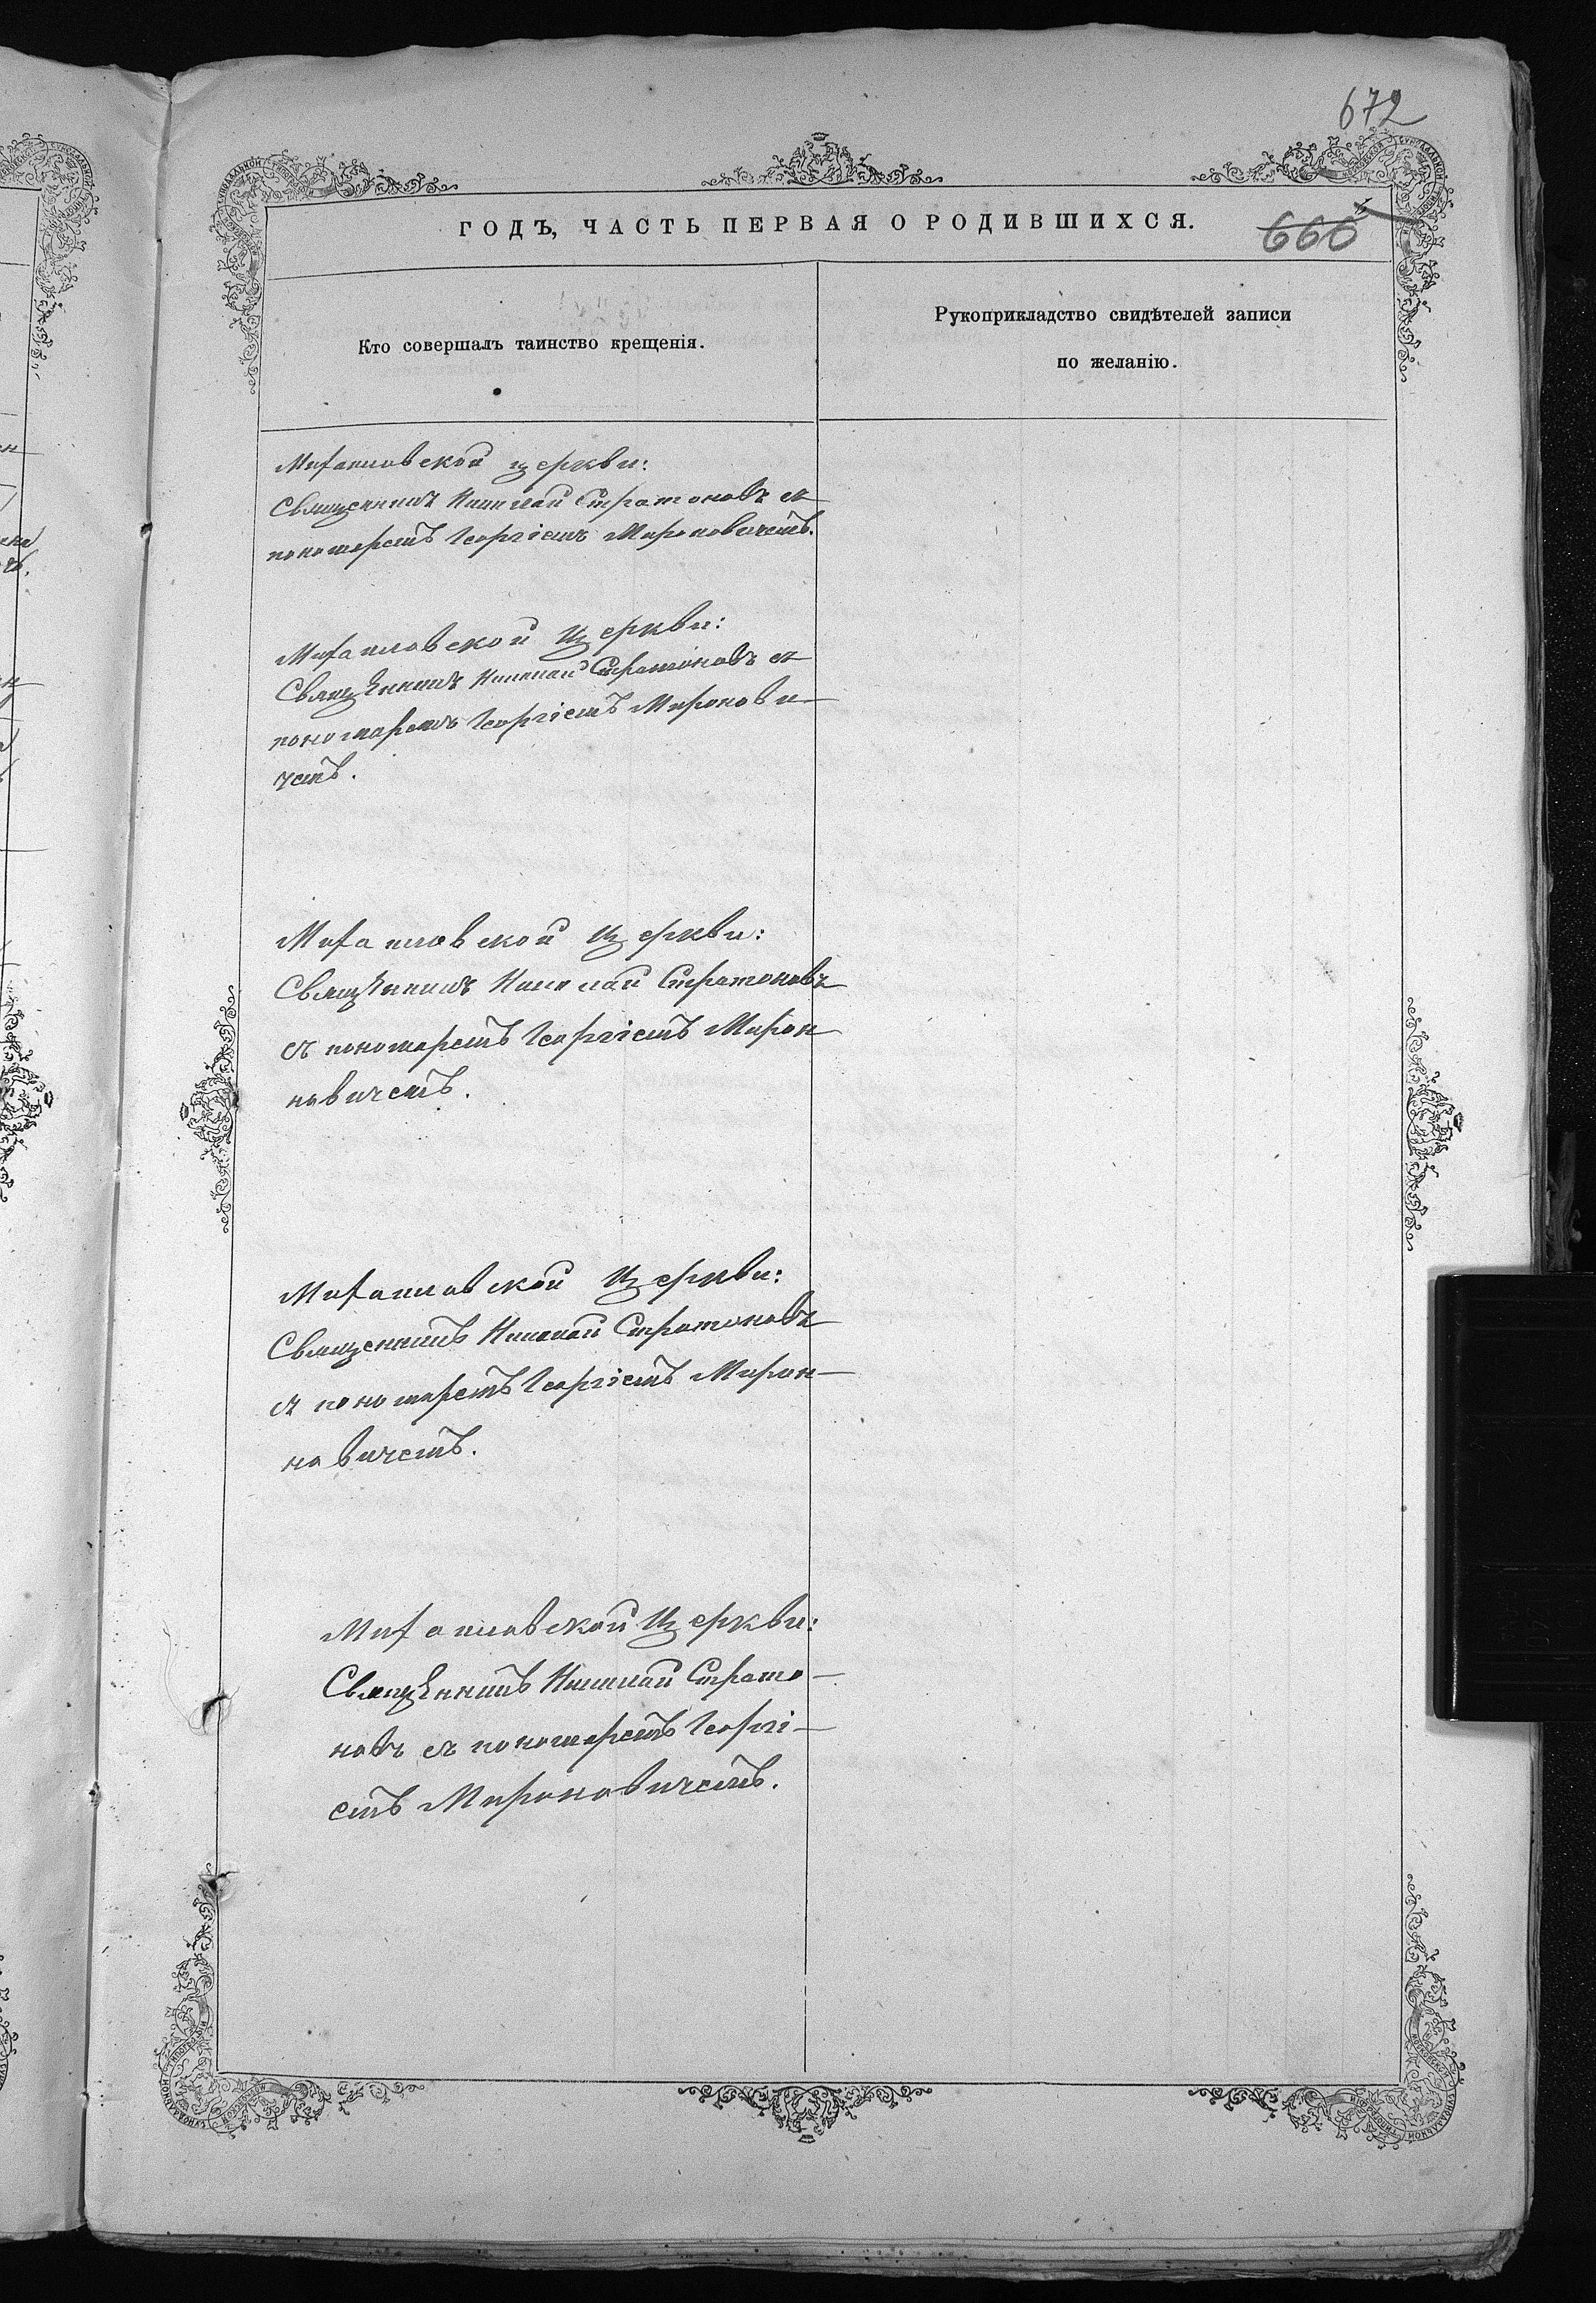 672
ГОДЪ, ЧАСТЬ ПЕРВАЯ О РОДИВШИХСЯ.
666
Кто совершалъ таинство крещенія.
Рукоприкладство свидѣтелей записи
по желанію.
Михаиловской церкви:
Священникъ Николай Стратоновъ съ
пономаремъ Георгіемъ Мироновичемъ.
Михаиловской Церкви:
Священникъ Николай Стратоновъ съ
пономаремъ Георгіемъ Миронови-
чемъ.
Михаиловской Церкви:
Священникъ Николай Стратоновъ
съ пономаремъ Георгіемъ Мирон
новичемъ.
Михаиловской Церкви:
Священникъ Николай Стратоновъ
съ пономаремъ Георгіемъ Мирон-
новичемъ.
Михаиловской Церкви:
Священникъ Николай Страто-
новъ съ пономаремъ Георгі-
емъ Мироновичемъ.